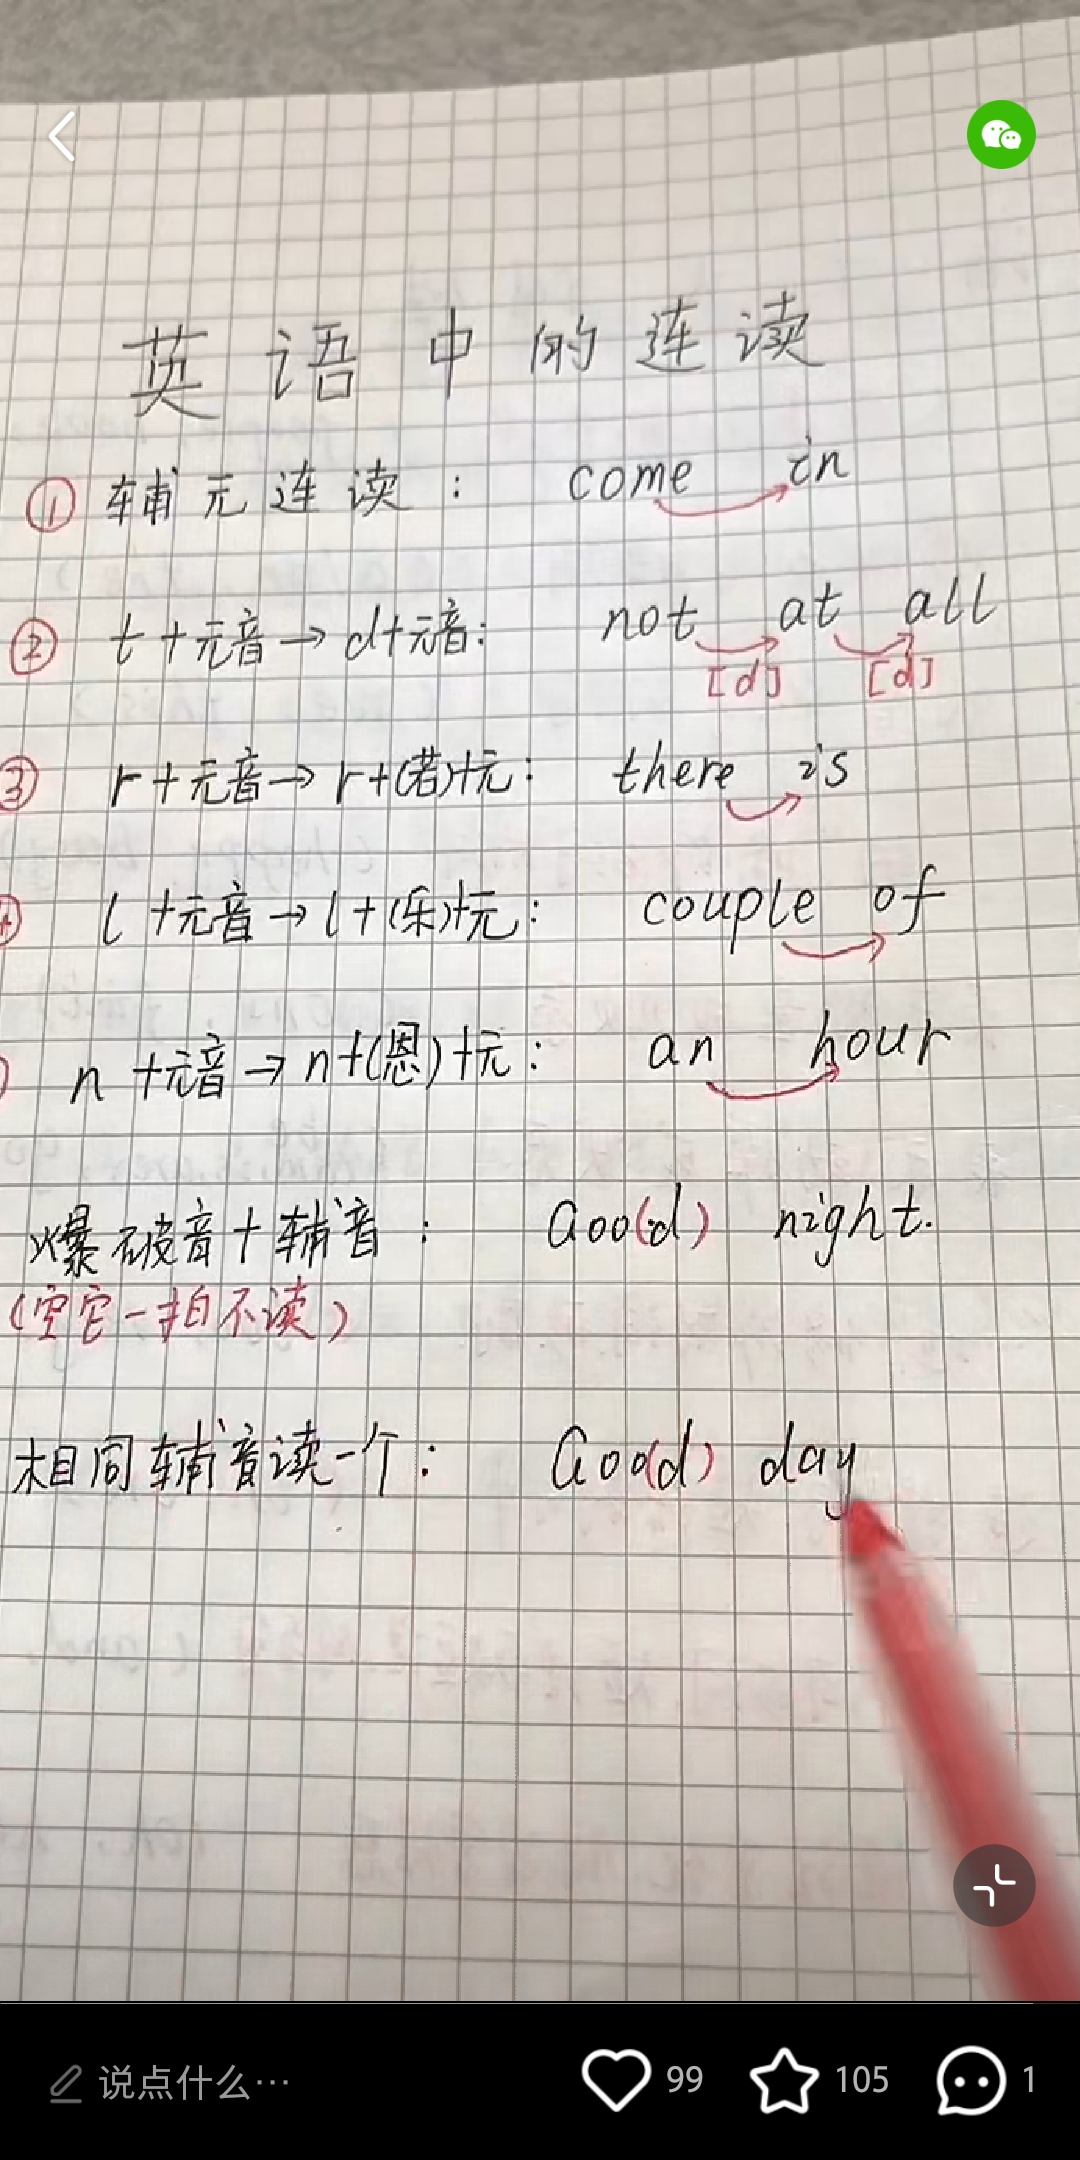 英语中的连读
① 辅元连读： come in
② t+元音→d+元音： not at all
[d] [d]
③ r+元音→r+(若)+元： there is
l+元音→l+(乐)+元： couple of
n+元音→n+(恩)+元： an hour
爆破音+辅音： Goo(d) night.
(空它一拍不读)
相同辅音读一个： Goo(d) day
说点什么… 99 105 1